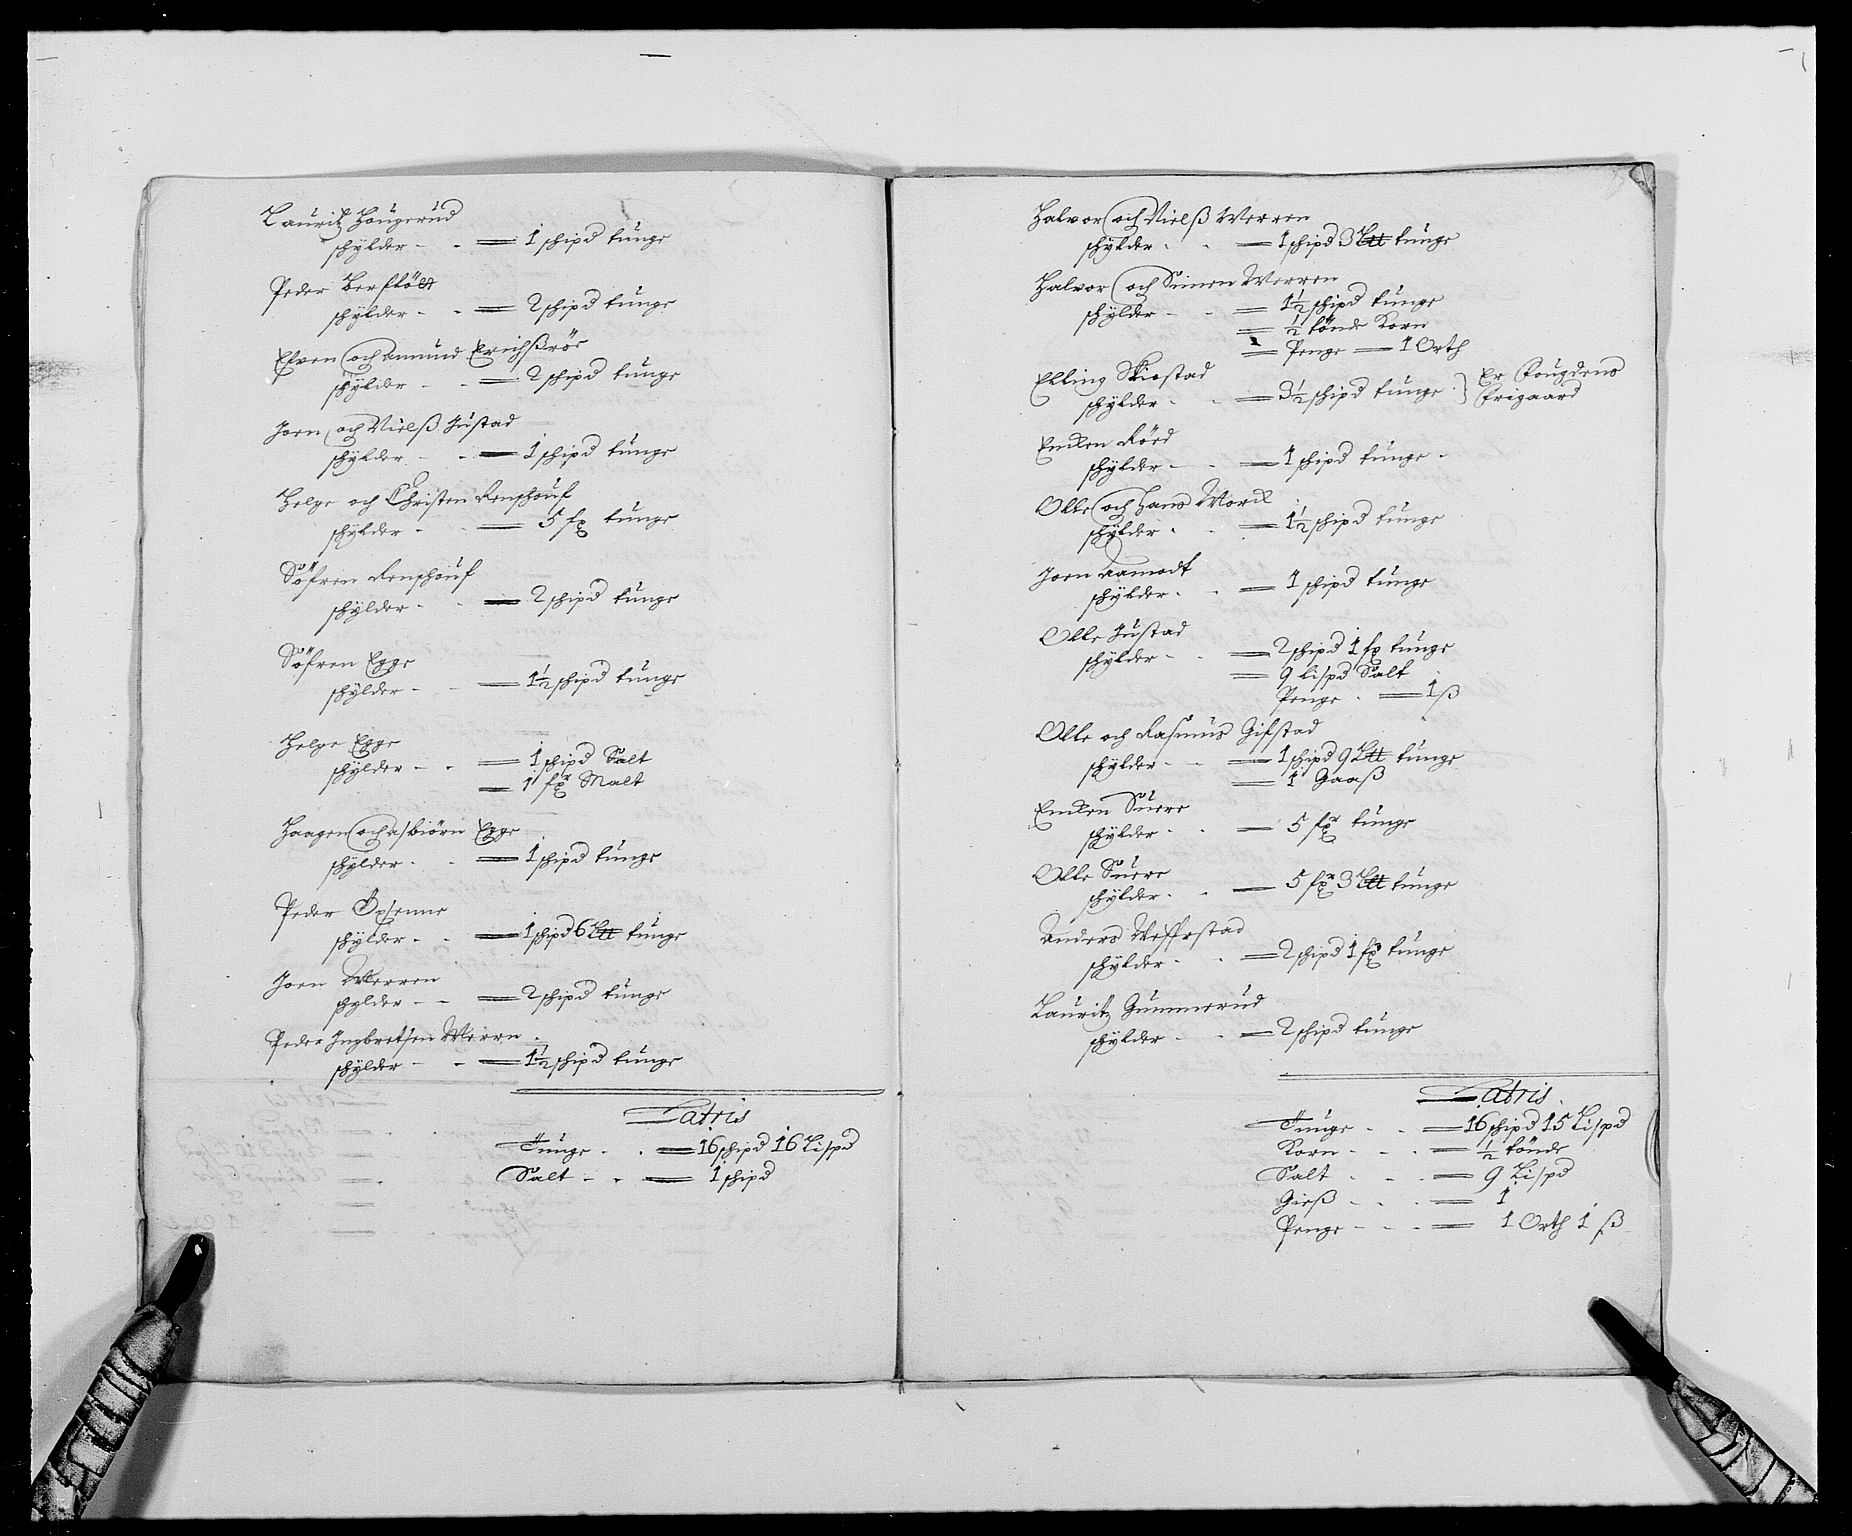 Lauritz Hougerud
schylder - - 1 schipd tunge
Peder Berstölt
schylder - - 2 schipd tunge
Efven och Amund Erichßröe
schylder - - 2 schipd tunge
Joen och Nielß Justad
schylder - - 1 schipd tunge
Helge och Christen Renschouf
schylder - - 5 fx tunge
Söfren Renschouf
schylder - - 2 schipd tunge
Söfren Egge
schylder - - 1½ schipd tunge
Helge Egge
schylder - - 1 schipd Salt
1 fxr Malt
Haagen och Asbiörn Egge
schylder - - 1 schipd tunge
Peder Opsenne
schylder - - 1 schipd 6 Ltt tunge
Joen Werren
schylder - - 2 schipd tunge
Peder Ingbretsen Werrn
schylder - - 1½ schipd tunge
Latris
Tunge - - 16 schipd 16 Lispd
Salt - - 1 schipd
Halvor och Nielß Werren
schylder - - 1 schipd 3 Ltt tunge
Halvor och Simen Werren
schylder - - 1½ schipd tunge
½ tönde Korn
Penge 1 Orth
Elling Skiostad
schylder - - 3½ schipd tunge } Er Fougdens
Frigaard
Embken Röed
schylder - - 1 schipd tunge
Olle och Hans Morck
schylder - - 1½ schipd tunge
Joen Aamodt
schylder - - 1 schipd tunge
Olle Justad
schylder - - 2 schipd 1 fx tunge
9 Lispd Salt
Penge - 1 ß
Olle och Rasmus Gifstad
schylder - - 1 schipd 9 Ltt tunge
1 Gaaß
Suere
schylder - - 5 fxr tunge
Olle Suere
schylder - - 5 fxr 3 Ltt tunge
Anders Weffestad
schylder - - 2 schipd 1 fx tunge
Lauritz Gummerud
schylder - - 2 schipd tunge
Latris
Tunge - - 16 schipd 15 Lispd
Korn - - - ½ tönde
Salt - - - 9 Lispd
Gieß - - - 1
Penge - - - 1 Orth 1 ß